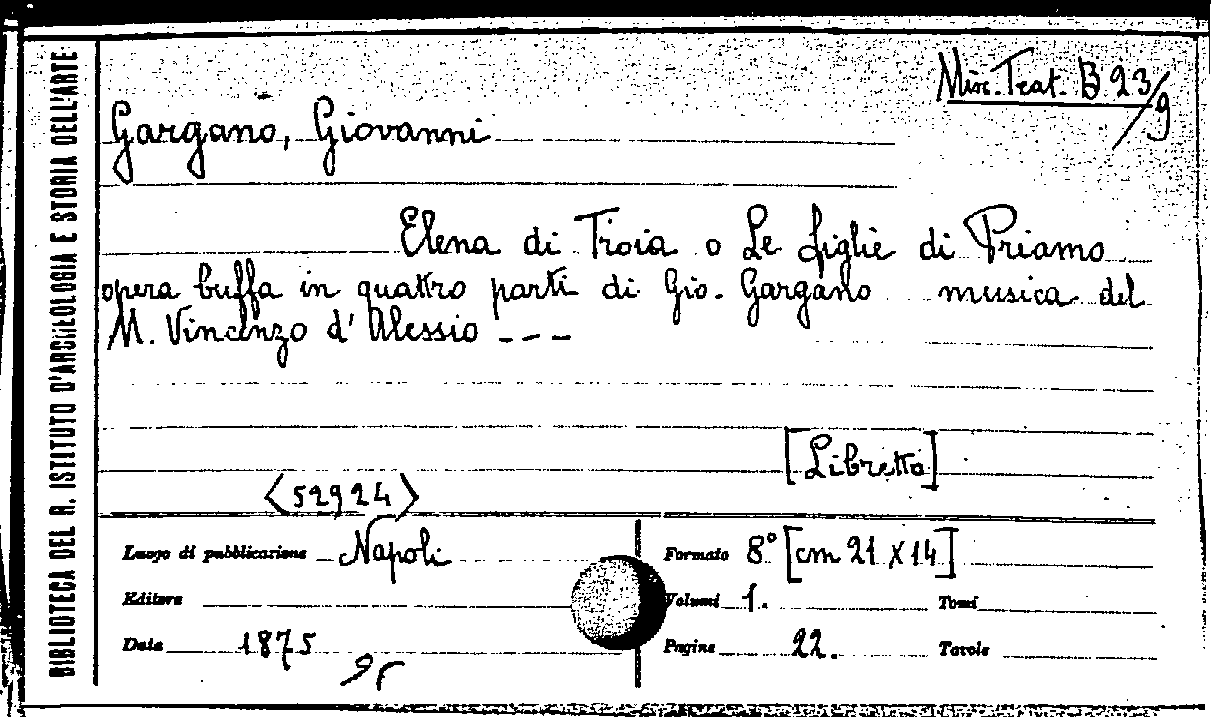 BIBLIOTECA DEL R. ISTITUTO D'ARCHEOLOGIA E STORIA DELL'ARTE
Misc. Teat. B 23/9
Gargano, Giovanni
Elena di Troia o Le figlie di Priamo
opera buffa in quattro parti di Gio. Gargano musica del
M. Vincenzo d'Alessio ---
[Libretto]
<52924>
Luogo di pubblicazione Napoli
Formato 8° [cm 21 X 14]
Editore
Volumi 1.
Tomi
Data 1875
Pagine 22.
Tavole